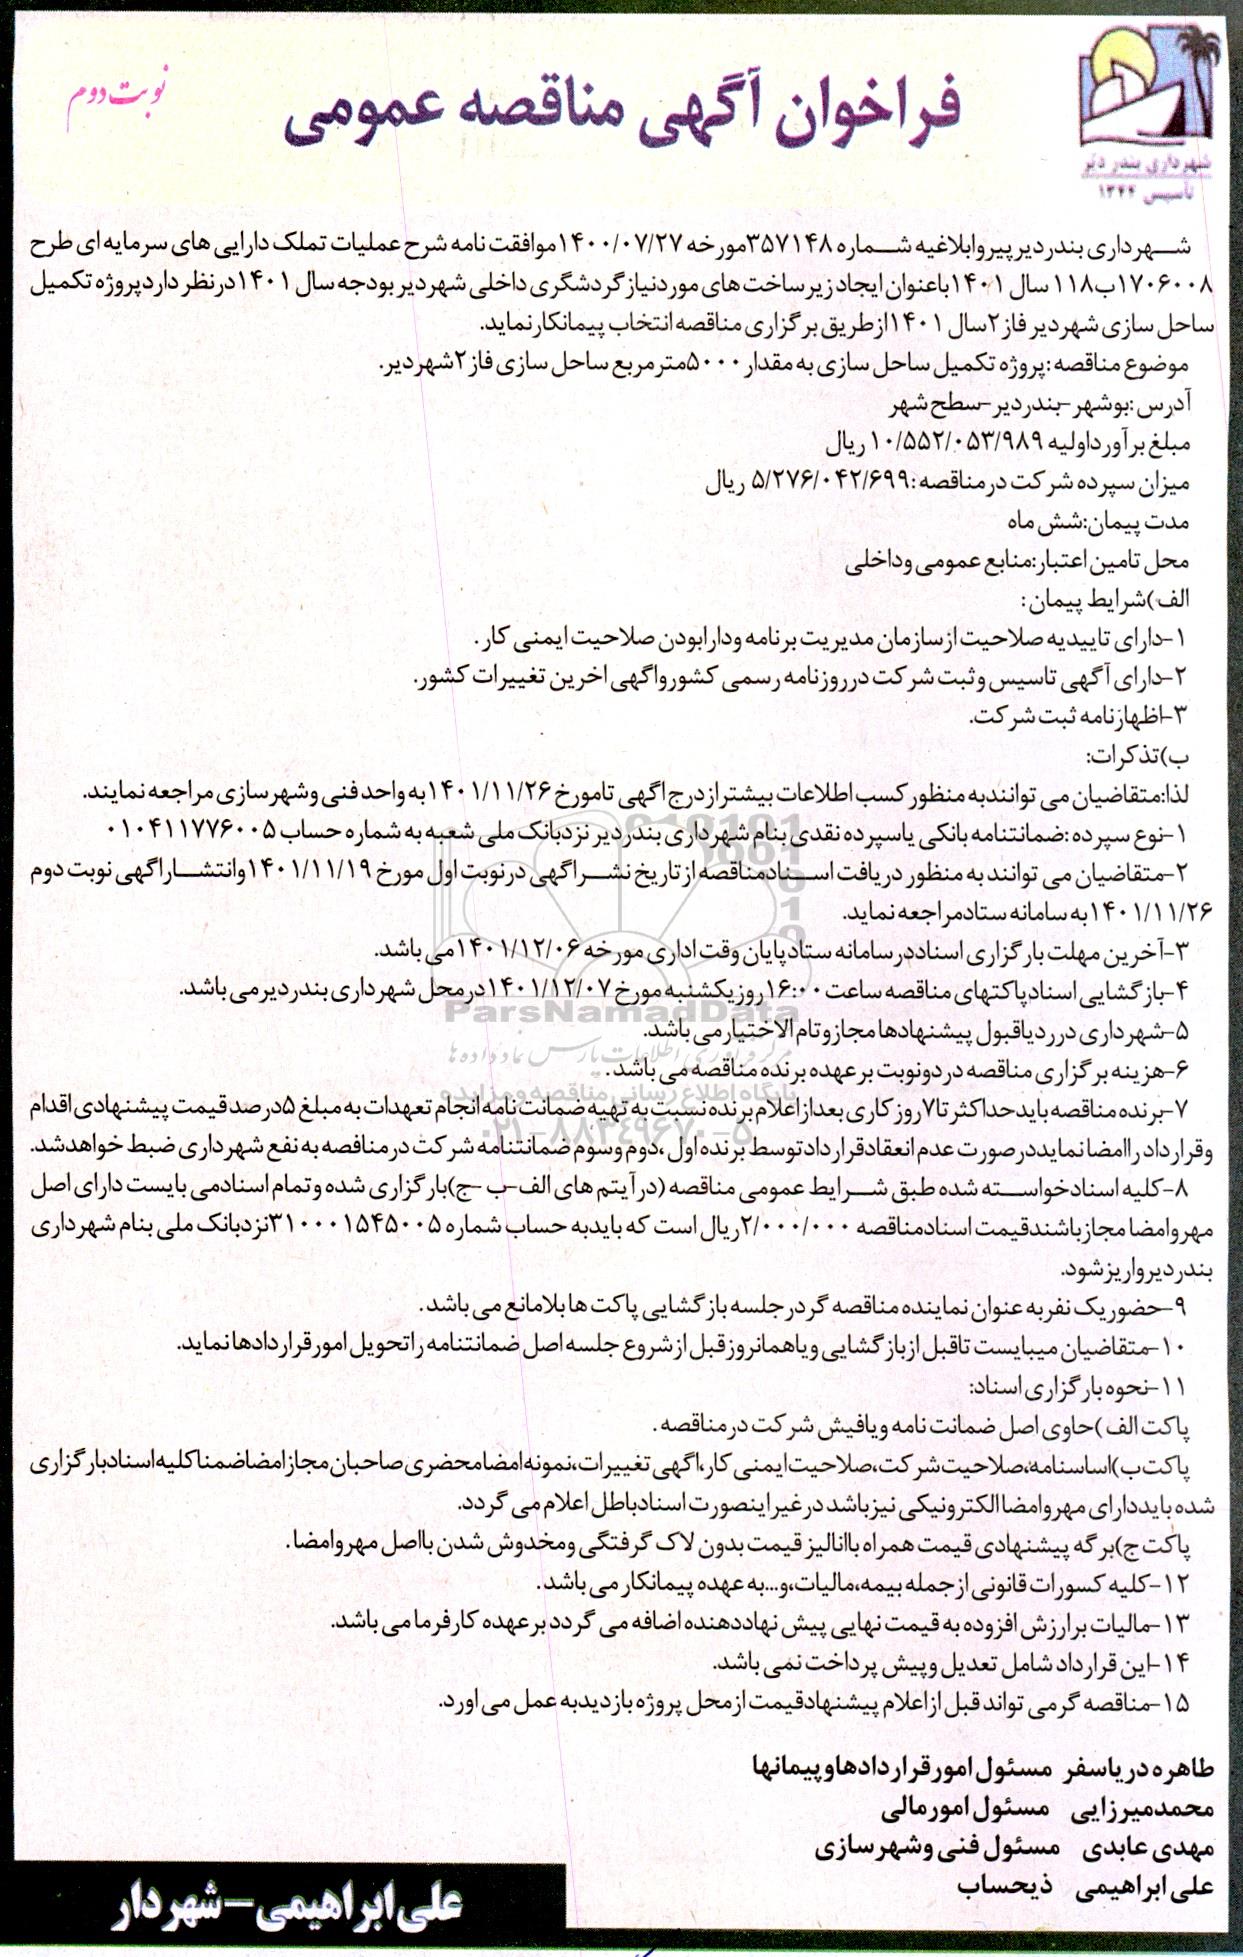 شهرداری بندر دیّر
تأسیس ۱۳۴۴
فراخوان آگهی مناقصه عمومی
نوبت دوم
شهرداری بندردیرپیروابلاغیه شماره ۳۵۷۱۴۸مورخه ۱۴۰۰/۰۷/۲۷موافقت نامه شرح عملیات تملک دارایی های سرمایه ای طرح
۱۷۰۶۰۰۸ب۱۱۸ سال ۱۴۰۱باعنوان ایجاد زیرساخت های موردنیازگردشگری داخلی شهردیربودجه سال ۱۴۰۱درنظر داردپروژه تکمیل
ساحل سازی شهردیر فاز۲سال ۱۴۰۱ازطریق برگزاری مناقصه انتخاب پیمانکارنماید.
موضوع مناقصه :پروژه تکمیل ساحل سازی به مقدار ۵۰۰۰مترمربع ساحل سازی فاز۲شهردیر.
آدرس :بوشهر-بندردیر-سطح شهر
مبلغ برآورداولیه ۱۰/۵۵۲/۰۵۳/۹۸۹ ریال
میزان سپرده شرکت درمناقصه :۵/۲۷۶/۰۴۲/۶۹۹ ریال
مدت پیمان:شش ماه
محل تامین اعتبار:منابع عمومی وداخلی
الف)شرایط پیمان :
۱-دارای تاییدیه صلاحیت ازسازمان مدیریت برنامه ودارابودن صلاحیت ایمنی کار .
۲-دارای آگهی تاسیس وثبت شرکت درروزنامه رسمی کشورواگهی اخرین تغییرات کشور.
۳-اظهارنامه ثبت شرکت.
ب)تذکرات:
لذا:متقاضیان می توانندبه منظورکسب اطلاعات بیشترازدرج اگهی تامورخ ۱۴۰۱/۱۱/۲۶به واحدفنی وشهرسازی مراجعه نمایند.
۱-نوع سپرده :ضمانتنامه بانکی یاسپرده نقدی بنام شهرداری بندردیر نزدبانک ملی شعبه به شماره حساب ۰۱۰۴۱۱۷۷۶۰۰۵
۲-متقاضیان می توانندبه منظور دریافت اسنادمناقصه ازتاریخ نشراگهی درنوبت اول مورخ ۱۴۰۱/۱۱/۱۹وانتشاراگهی نوبت دوم
۱۴۰۱/۱۱/۲۶به سامانه ستادمراجعه نماید.
۳-آخرین مهلت بارگزاری اسناددرسامانه ستادپایان وقت اداری مورخه ۱۴۰۱/۱۲/۰۶می باشد.
۴-بازگشایی اسنادپاکتهای مناقصه ساعت ۱۶:۰۰روزیکشنبه مورخ ۱۴۰۱/۱۲/۰۷درمحل شهرداری بندردیرمی باشد.
ParsNamadData
۵-شهرداری درردیاقبول پیشنهادها مجازوتام الاختیارمی باشد.
مرکز فرآوری اطلاعات پارس نماد داده ها
۶-هزینه برگزاری مناقصه دردونوبت برعهده برنده مناقصه می باشد .
پایگاه اطلاع رسانی مناقصه و مزایده
۷-برنده مناقصه بایدحداکثرتا۷روزکاری بعدازاعلام برنده نسبت به تهیه ضمانت نامه انجام تعهدات به مبلغ ۵درصدقیمت پیشنهادی اقدام
۰۲۱-۸۸۳۴۹۶۷۰-۵
وقراردادراامضانمایددرصورت عدم انعقادقراردادتوسط برنده اول ،دوم وسوم ضمانتنامه شرکت درمناقصه به نفع شهرداری ضبط خواهدشد.
۸-کلیه اسنادخواسته شده طبق شرایط عمومی مناقصه (درآیتم های الف-ب -ج)بارگزاری شده وتمام اسنادمی بایست دارای اصل
مهروامضا مجازباشندقیمت اسنادمناقصه ۲/۰۰۰/۰۰۰ریال است که بایدبه حساب شماره ۳۱۰۰۰۱۵۴۵۰۰۵نزدبانک ملی بنام شهرداری
بندردیرواریزشود.
۹-حضوریک نفربه عنوان نماینده مناقصه گردرجلسه بازگشایی پاکت هابلامانع می باشد .
۱۰-متقاضیان میبایست تاقبل ازبازگشایی ویاهمانروزقبل ازشروع جلسه اصل ضمانتنامه راتحویل امورقراردادهانماید.
۱۱-نحوه بارگزاری اسناد:
پاکت الف)حاوی اصل ضمانت نامه ویافیش شرکت درمناقصه .
پاکت ب)اساسنامه،صلاحیت شرکت،صلاحیت ایمنی کار،اگهی تغییرات،نمونه امضامحضری صاحبان مجازامضاضمناکلیه اسنادبارگزاری
شده بایددارای مهروامضاالکترونیکی نیزباشد درغیراینصورت اسنادباطل اعلام می گردد.
پاکت ج)برگه پیشنهادی قیمت همراه باانالیزقیمت بدون لاک گرفتگی ومخدوش شدن بااصل مهروامضا.
۱۲-کلیه کسورات قانونی ازجمله بیمه،مالیات،و...به عهده پیمانکارمی باشد .
۱۳-مالیات برارزش افزوده به قیمت نهایی پیش نهاددهنده اضافه می گردد برعهده کارفرمامی باشد.
۱۴-این قرارداد شامل تعدیل وپیش پرداخت نمی باشد.
۱۵-مناقصه گرمی تواند قبل ازاعلام پیشنهادقیمت ازمحل پروژه بازدیدبه عمل می اورد.
طاهره دریاسفر مسئول امورقراردادهاوپیمانها
محمدمیرزایی مسئول امورمالی
مهدی عابدی مسئول فنی وشهرسازی
علی ابراهیمی ذیحساب
علی ابراهیمی-شهردار